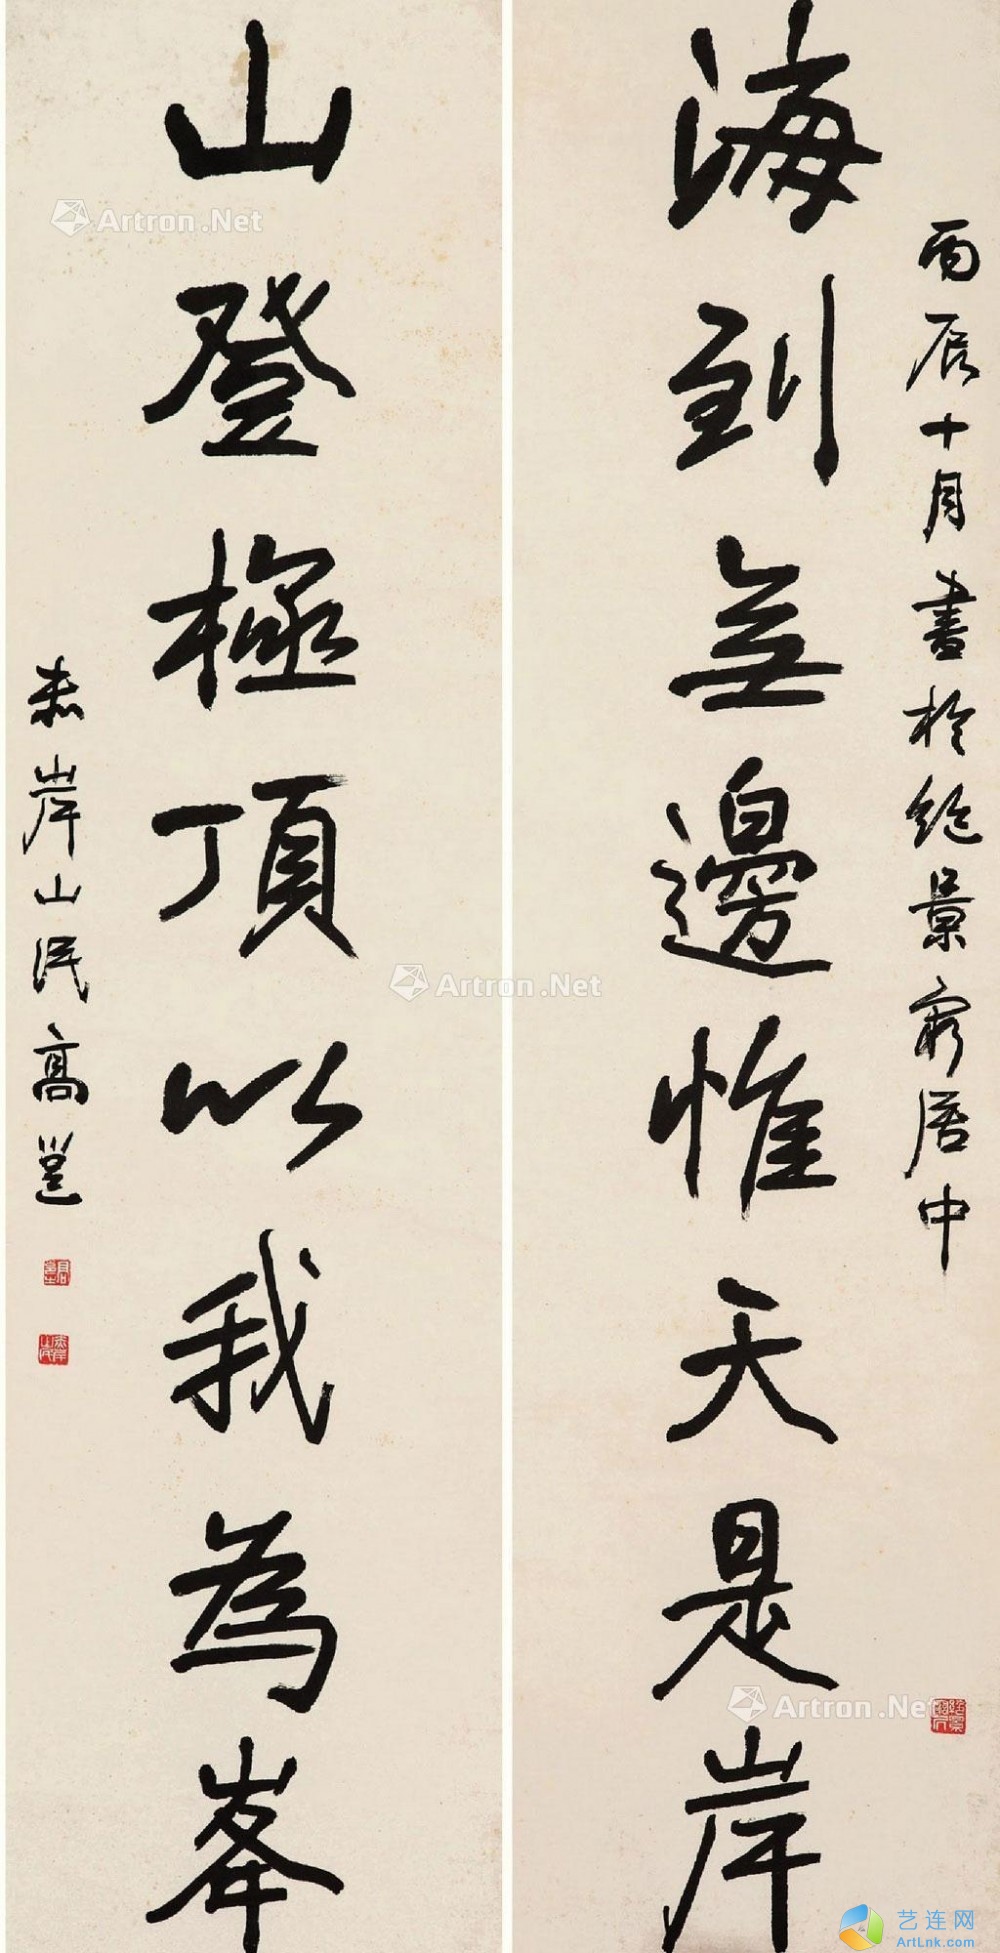 丙辰十月書於絶景窮居中
海到無邊惟天是岸
山登極頂以我為峯
赤岸山民高邕
Artron.Net
Artron.Net
Artron.Net
艺连网
ArtLnk.com